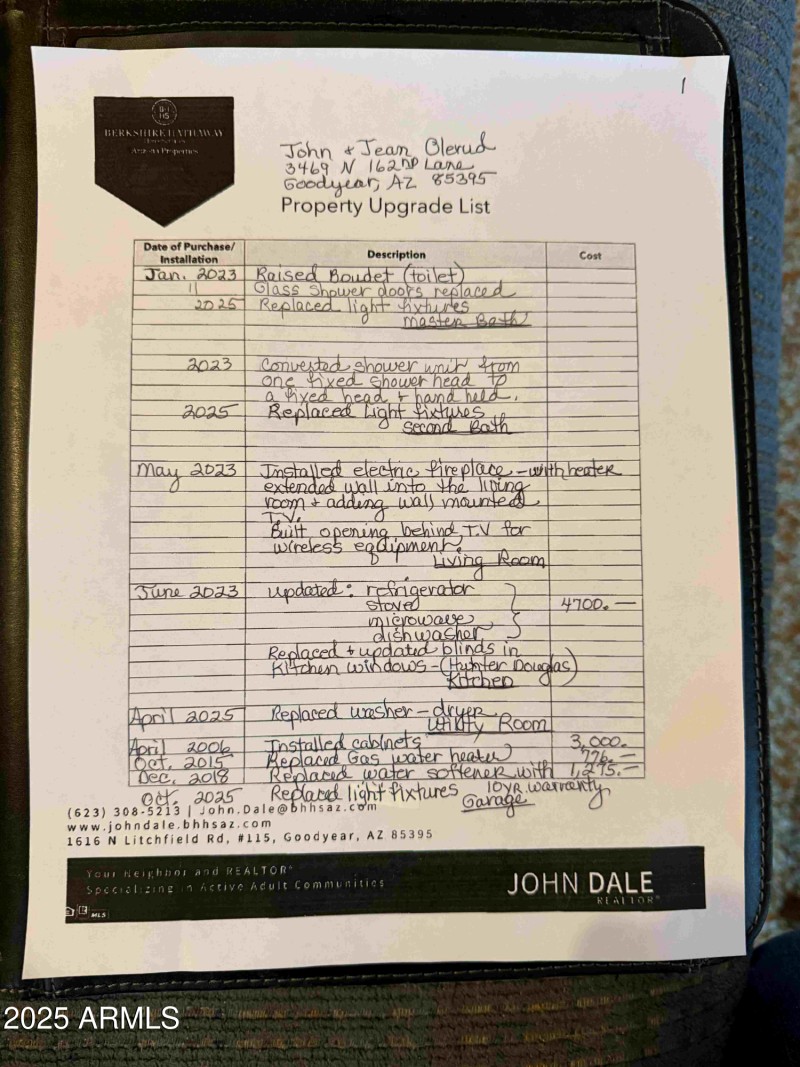 1
BERKSHIRE HATHAWAY
Arizona Properties
John + Jean Olerud
3469 N 162ND Lane
Goodyear, AZ 85395
Property Upgrade List
Date of Purchase/ Installation Description Cost
Jan. 2023 Raised Boudet (toilet)
11 Glass shower doors replaced
2025 Replaced light fixtures
Master Bath
2023 Converted shower unit from
one fixed shower head to
a fixed head + hand held.
2025 Replaced Light fixtures
Second Bath
May 2023 Installed electric fireplace - with heater
extended wall into the living
room + adding wall mounted
T.V.
Built opening behind T.V for
wireless equipment.
Living Room
June 2023 updated: refrigerator
stove 4700.—
microwave
dishwasher
Replaced + updated blinds in
Kitchen windows - (Hunter Douglas)
Kitchen
April 2025 Replaced washer - dryer
Utility Room
April 2006 Installed cabinets 3,000.-
Oct. 2015 Replaced Gas water heater 776.—
Dec. 2018 Replaced water softener with 1,295.—
10 YR. warranty
Oct. 2025 Replaced light fixtures
Garage
(623) 308-5213 | John.Dale@bhhsaz.com
www.johndale.bhhsaz.com
1616 N Litchfield Rd, #115, Goodyear, AZ 85395
Your Neighbor and REALTOR®
Specializing in Active Adult Communities
JOHN DALE
REALTOR®
MLS
2025 ARMLS